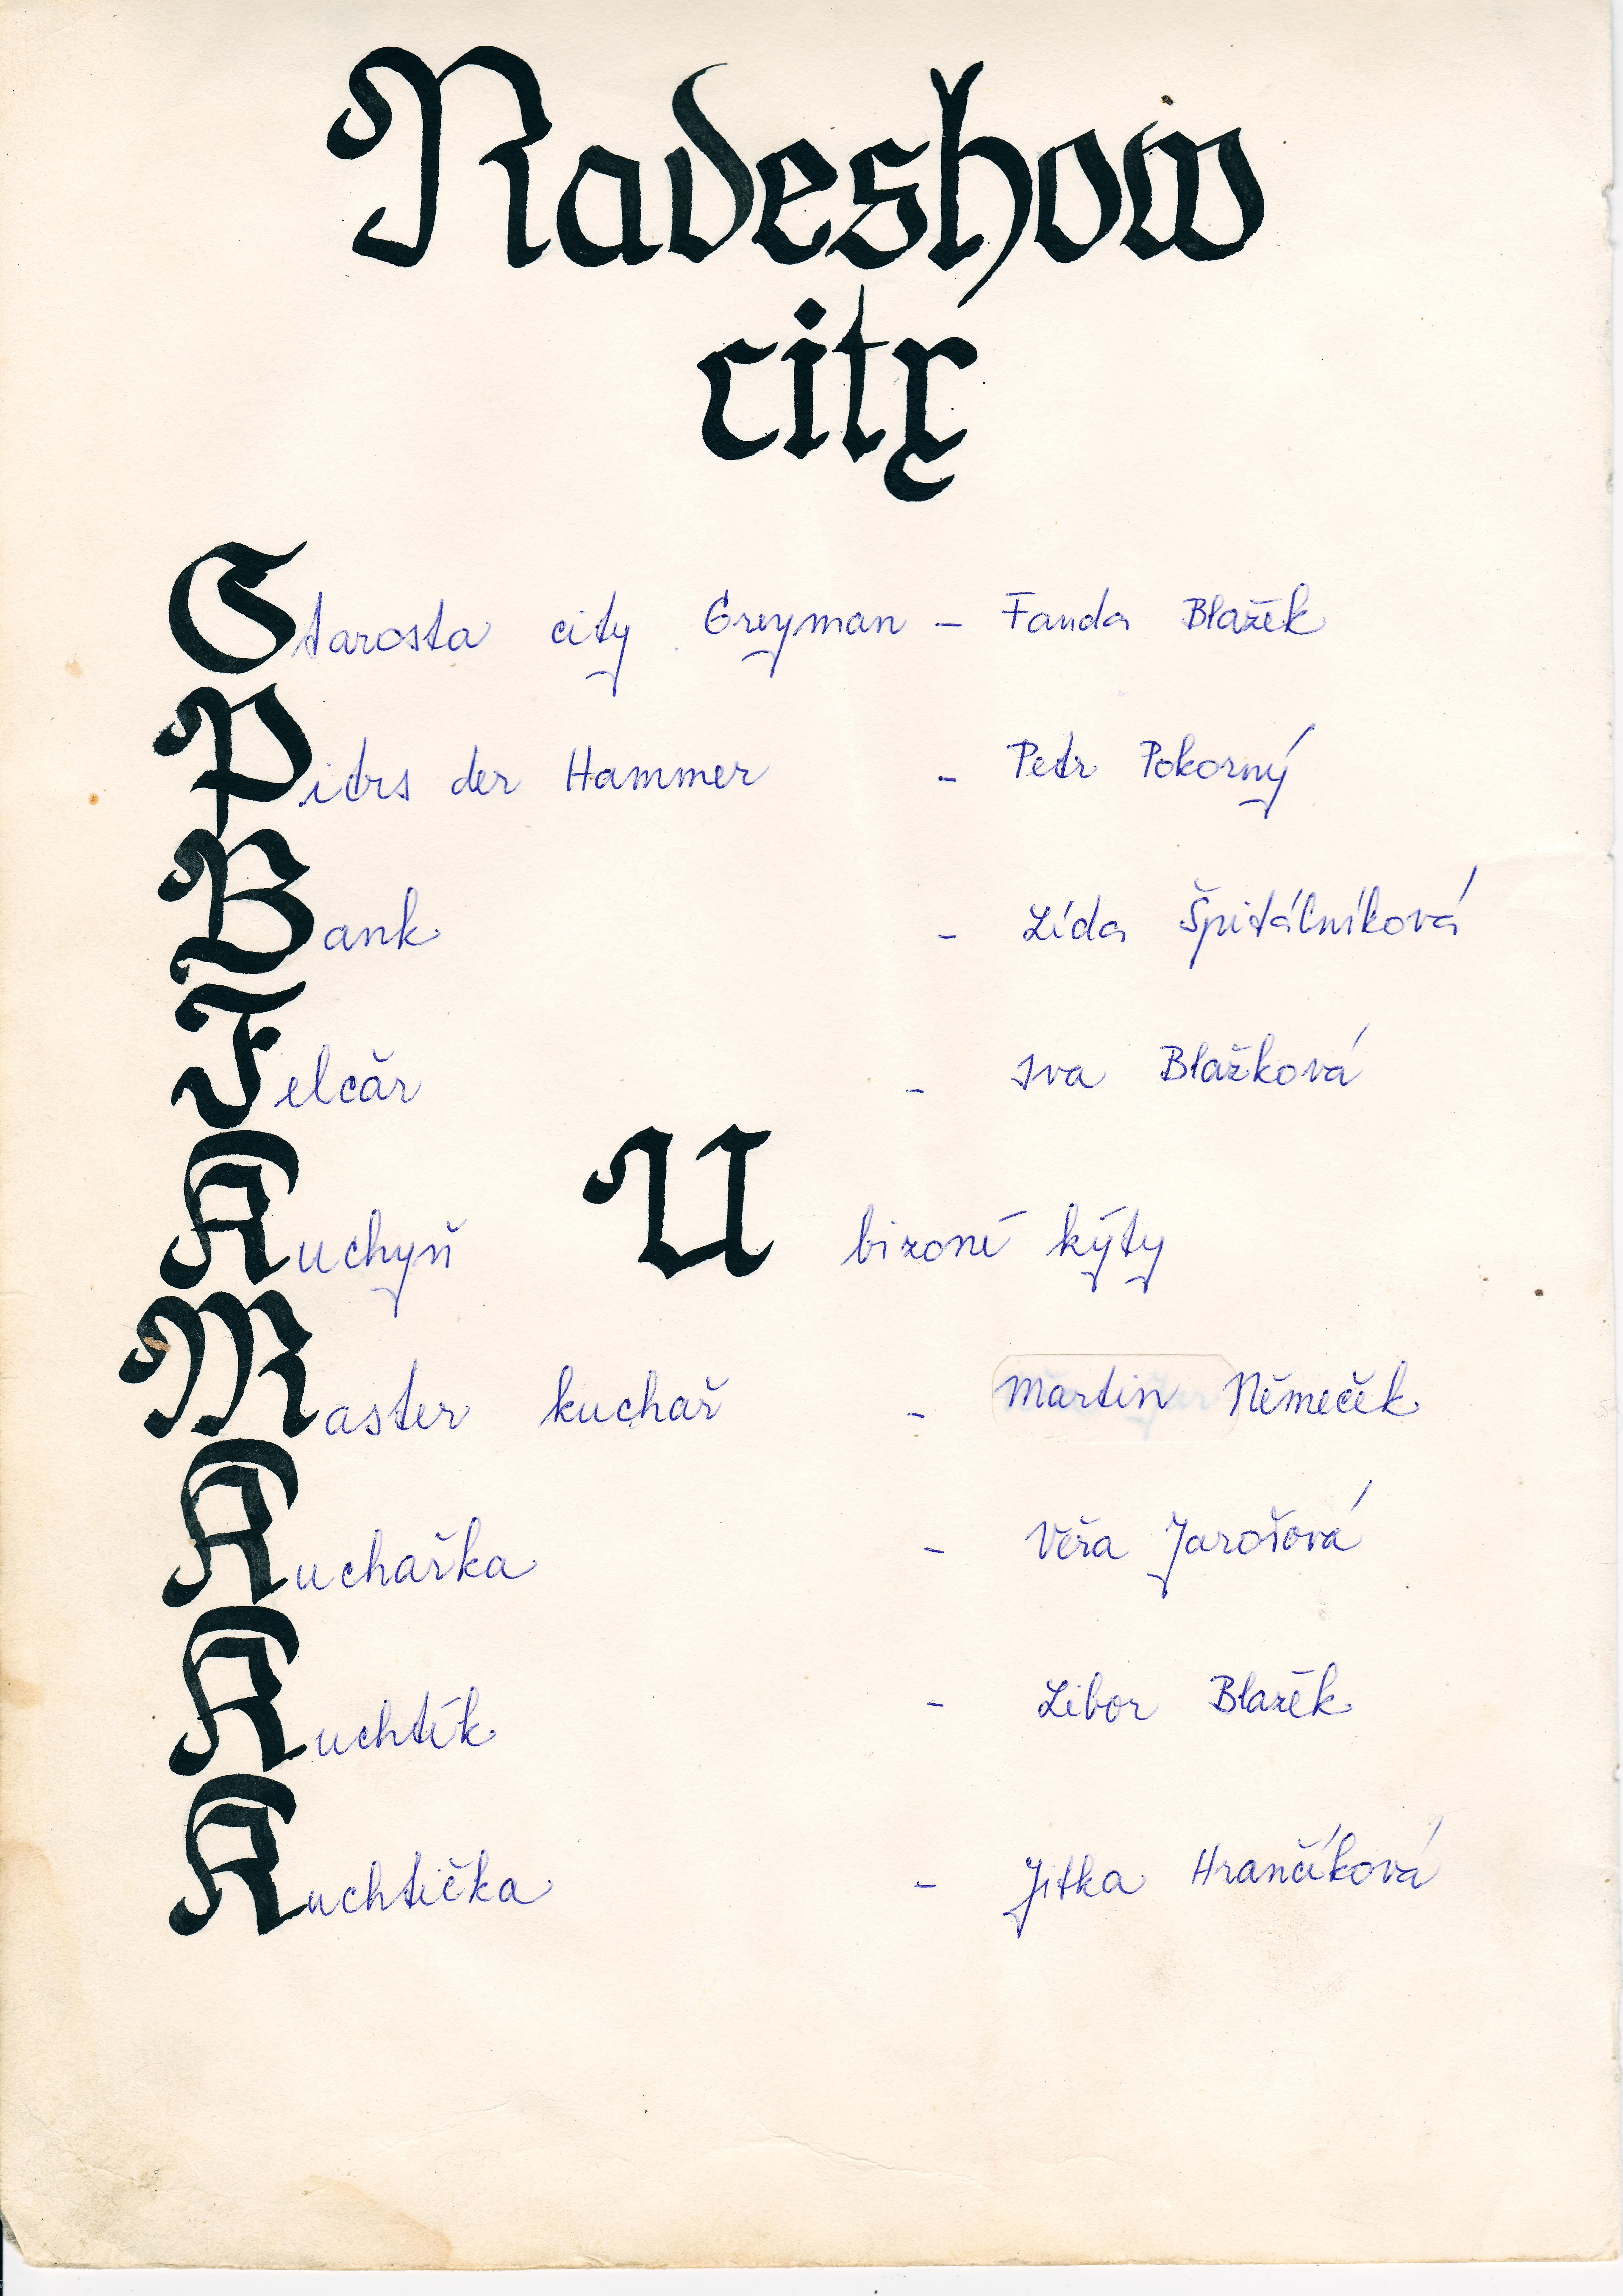 Radeshow
city
Starosta city Greyman - Fanda Blažek
Pitrs der Hammer - Petr Pokorný
Bank - Lída Špitálníková
Felčar - Iva Blažková
Kuchyň U bizoní kýty
Master kuchař - Martin Němeček
Kuchařka - Věra Jarošová
Kuchtík - Libor Blažek
Kuchtička - Jitka Hrančíková